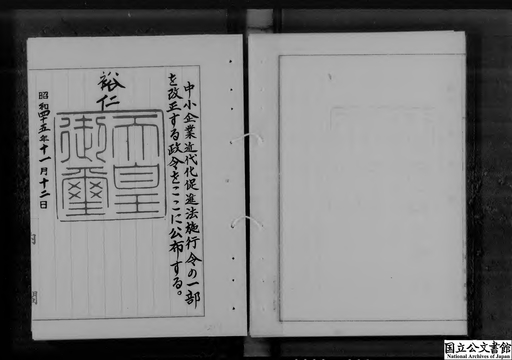 中小企業近代化促進法施行令の一部
を改正する政令をここに公布する。
裕仁
天皇
御璽
昭和四十五年十一月十二日
国立公文書館
National Archives of Japan